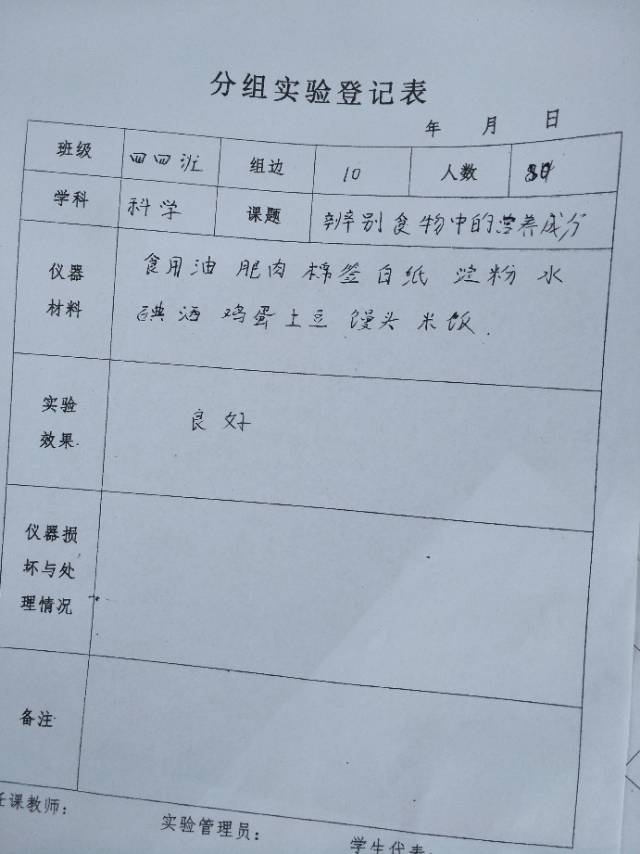 分组实验登记表
年 月 日
班级 四四班 组边 10 人数
学科 科学 课题 辨别食物中的营养成分
仪器 食用油 肥肉 棉签 白纸 淀粉 水
材料 碘酒 鸡蛋 土豆 馒头 米饭.
实验
效果. 良好
仪器损
坏与处
理情况
备注
任课教师:
实验管理员:
学生代表: